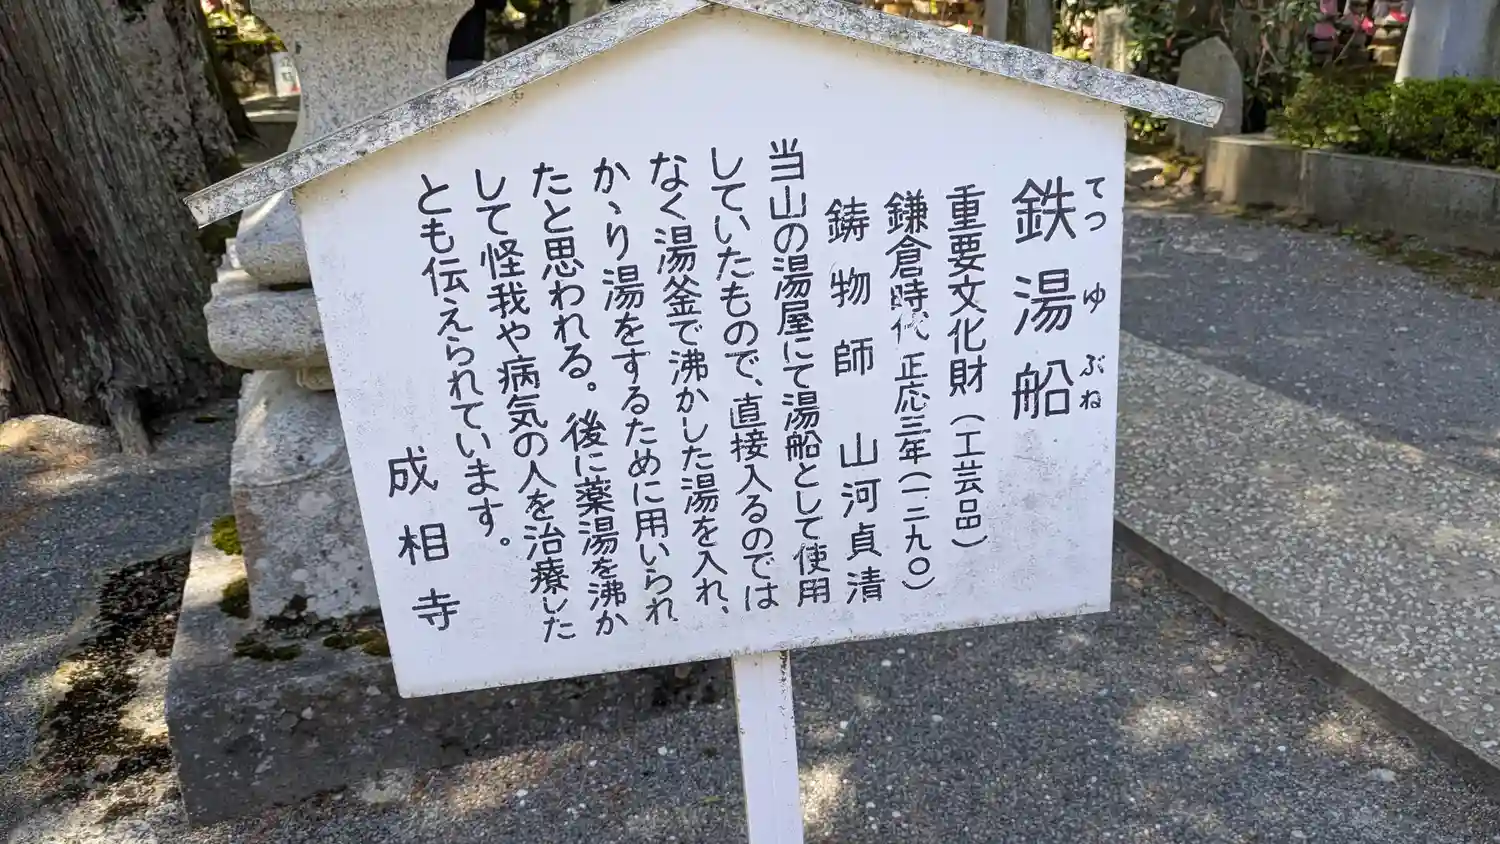 鉄湯船
てつ ゆ ぶね
重要文化財（工芸品）
鎌倉時代 正応三年（一二九〇）
鋳物師 山河貞清
当山の湯屋にて湯船として使用
していたもので、直接入るのでは
なく湯釜で沸かした湯を入れ、
かゝり湯をするために用いられ
たと思われる。後に薬湯を沸か
して怪我や病気の人を治療した
とも伝えられています。
成相寺